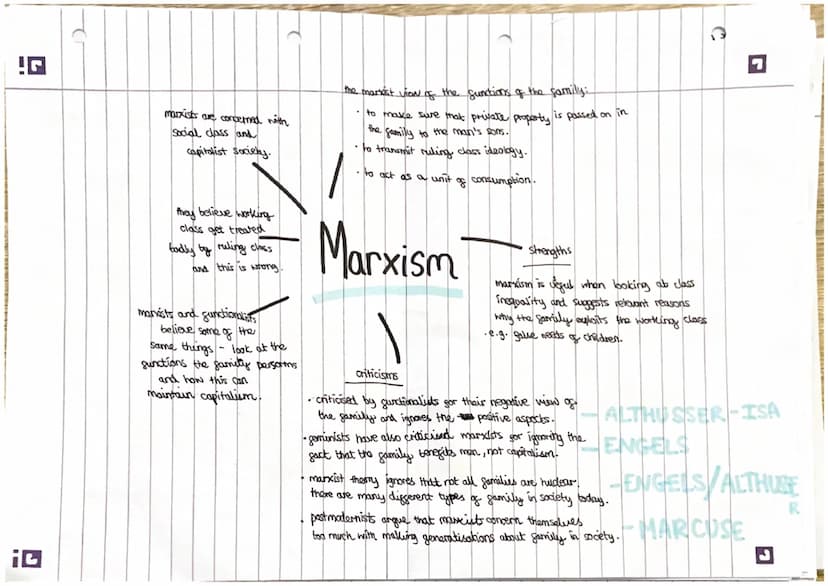 the marxist view of the functions of the family:
· to make sure that private property is passed on in
the family to the man's sons.
· to transmit ruling class ideology.
· to act as a unit of consumption.
marxists are concerned with
social class and
capitalist society.
they believe working
class get treated
badly by ruling class
and this is wrong.
Marxism
marxists and functionalists
believe some of the
same things - look at the
functions the family performs
and how this can
maintain capitalism.
strengths
marxism is useful when looking at class
inequality and suggests relevant reasons
why the family exploits the working class
· e.g. false needs of children.
criticisms
· criticised by functionalists for their negative view of
the family and ignores the positive aspects.
· feminists have also criticised marxists for ignoring the
fact that the family benefits men, not capitalism.
· marxist theory ignores that not all families are nuclear.
there are many different types of family in society today.
· postmodernists argue that marxists concern themselves
too much with making generalisations about family in society.
- ALTHUSSER - ISA
- ENGELS
- ENGELS/ALTHUSSE
R
- MARCUSE